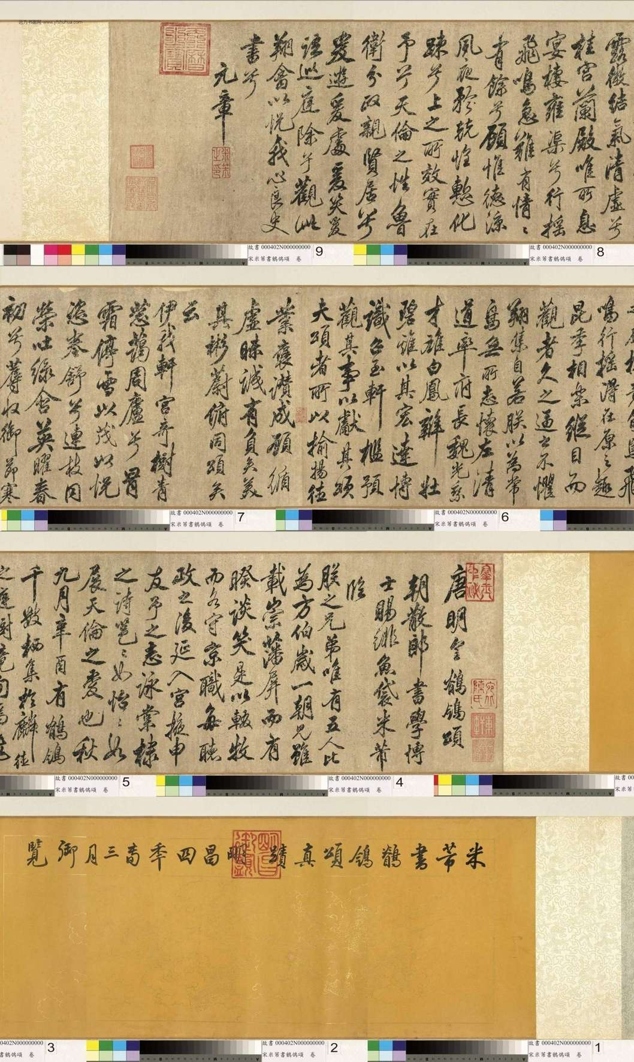 米芾書鶺鴒頌真蹟 明昌四季三月御覽
唐明皇鶺鴒頌
朝散郎書學博
士賜緋魚袋米芾
臨
朕之兄弟唯有五人比
為方伯歲一朝見雖
載崇藩屏而有
睽談笑是以輟牧
而各守京職每聽
政之後延入宮掖申
友于之志詠棠棣
之詩邕〻如怡〻如
展天倫之愛也秋
九月辛酉有鶺鴒
千數栖集於麟德
之庭樹竟旬焉
鳴行搖得在原之趣
昆季相樂縱目而
觀者久之逼之不懼
翔集自若朕以為常
鳥無所志懷左清
道率府長魏光乘
才雄白鳳辯壯
碧雞以其宏達博
識召至軒檻預
觀其事以獻其頌
夫頌者所以揄揚德
業褒讚成顧循
虛昧誠有負矣美
其彬蔚俯同頌矣
云
伊我軒宮奇樹青
蔥藹周廬兮冒
霜停雪以茂以悅
恣卷舒兮連枝同
榮吐綠含英曜春
初兮蓐收御節寒
露微結氣清虛兮
桂宮蘭殿唯所息
宴棲雍渠兮行搖
飛鳴急難有情〻
有餘兮顧惟德涼
夙夜兢惶慙化
踈兮上之所效實在
予兮天倫之性魯
衛分政親賢居兮
爰遊爰處爰笑爰
語巡庭除兮觀此
翔禽以悅我心良史
書兮
元章
故書 000402N000000000
宋米芾書鶺鴒頌 卷
1
2
3
4
5
6
7
8
9